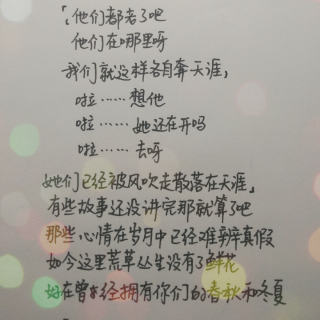 「他们都老了吧
他们在哪里呀
我们就这样各自奔天涯」
啦……想他
啦……她还在开吗
啦……去呀
她们已经被风吹走散落在天涯」
有些故事还没讲完那就算了吧
那些心情在岁月中已经难辨真假
如今这里荒草丛生没有了鲜花
好在曾经拥有你们的春秋和冬夏